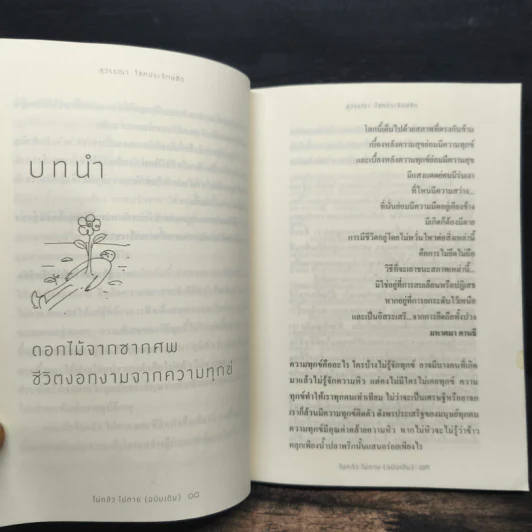 สุวรรณา โชคประจักษ์ชัด
บทนำ
ดอกไม้จากซากศพ
ชีวิตงอกงามจากความทุกข์
ไม่กลัว ไม่ตาย (ฉบับเดิม)
สุวรรณา โชคประจักษ์ชัด
โลกนี้เต็มไปด้วยสภาพที่ตรงกันข้าม
เบื้องหลังความสุขย่อมมีความทุกข์
และเบื้องหลังความทุกข์ย่อมมีความสุข
มีแสงแดดย่อมมีร่มเงา
ที่ไหนมีความสว่าง...
ที่นั่นย่อมมีความมืดอยู่เคียงข้าง
มีเกิดก็ต้องมีตาย
การมีชีวิตอยู่โดยไม่หวั่นไหวต่อสิ่งเหล่านี้
คือการไม่ยึดไม่ถือ
วิธีที่จะเอาชนะสภาพเหล่านี้...
มิใช่อยู่ที่การลบเลือนหรือปฏิเสธ
หากอยู่ที่การยกระดับไว้เหนือ
และเป็นอิสรเสรี...จากการยึดถือทั้งปวง
มหาตมา คานธี
ความทุกข์คืออะไร ใครบ้างไม่รู้จักทุกข์ อาจมีบางคนที่เกิด
มาแล้วไม่รู้จักความหิว แต่คงไม่มีใครไม่เคยทุกข์ ความ
ทุกข์ทำให้เราทุกคนเท่าเทียม ไม่ว่าจะเป็นเศรษฐีหรือยาจก
เราก็ล้วนมีความทุกข์ติดตัว ดังพรประเสริฐของมนุษย์ทุกคน
ความทุกข์มีคุณค่าคล้ายความหิว หากไม่หิวจะไม่รู้ว่าข้าว
คลุกเพียงน้ำปลาพริกนั้นแสนอร่อยเพียงไร
ไม่กลัว ไม่ตาย (ฉบับเดิม)